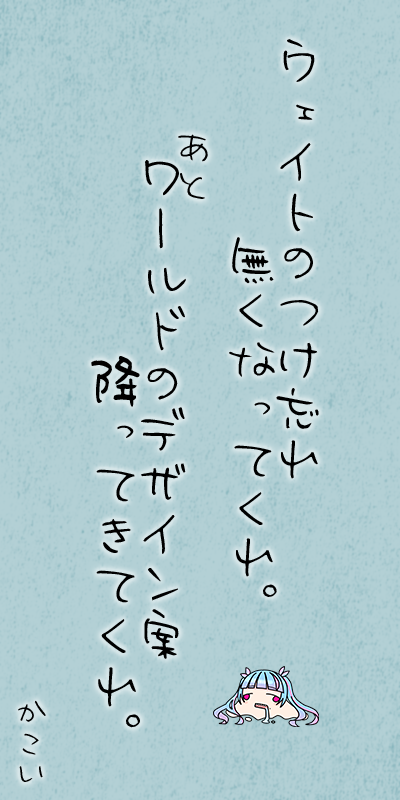 ウェイトのつけ忘れ
無くなってくれ。
あと
ワールドのデザイン案
降ってきてくれ。
かこい